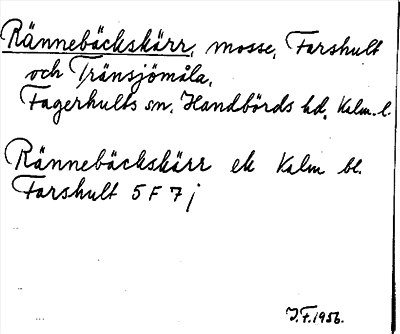 Rännebäckskärr, mosse, Farshult
och Tränsjömåla,
Fagerhults sn. Handbörds hd, Kalm. l.
Rännebäckskärr ek Kalm bl.
Farshult 5 F 7 j
J.F.1956.